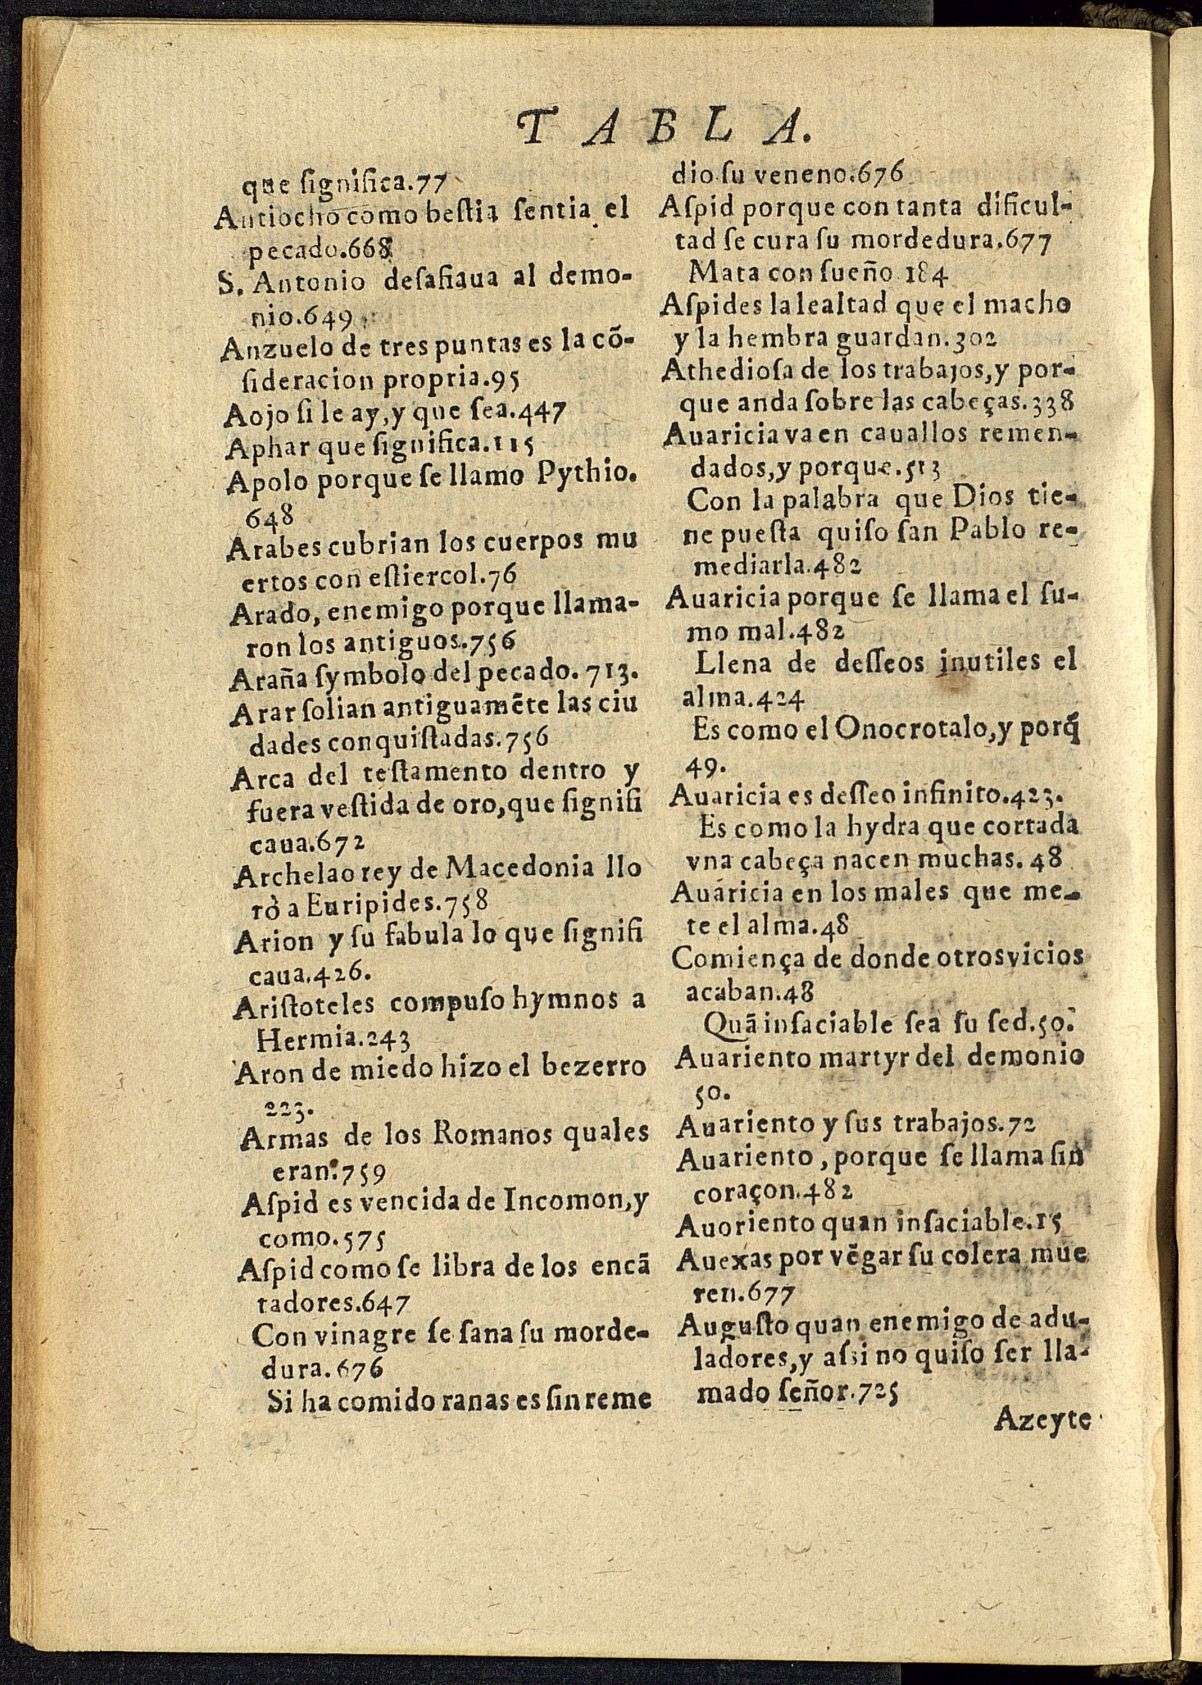 TABLA.
que significa.77
Antiocho como bestia sentia el
pecado.668
S. Antonio desafiaua al demo-
nio.649
Anzuelo de tres puntas es la cõ-
sideracion propria.95
Aojo si le ay, y que sea.447
Aphar que significa.115
Apolo porque se llamo Pythio.
648
Arabes cubrian los cuerpos mu
ertos con estiercol.76
Arado, enemigo porque llama-
ron los antiguos.756
Araña symbolo del pecado. 713.
Arar solian antiguamẽte las ciu
dades conquistadas.756
Arca del testamento dentro y
fuera vestida de oro, que signifi
caua.672
Archelao rey de Macedonia llo
rò a Euripides.758
Arion y su fabula lo que signifi
caua.426.
Aristoteles compuso hymnos a
Hermia.243
Aron de miedo hizo el bezerro
223.
Armas de los Romanos quales
eran.759
Aspid es vencida de Incomon, y
como.575
Aspid como se libra de los encã
tadores.647
Con vinagre se sana su morde-
dura.676
Si ha comido ranas es sin reme
dio su veneno.676
Aspid porque con tanta dificul-
tad se cura su mordedura.677
Mata con sueño 184
Aspides la lealtad que el macho
y la hembra guardan.302
Athediosa de los trabajos, y por-
que anda sobre las cabeças.338
Auaricia va en cauallos remen-
dados, y porque.513
Con la palabra que Dios tie-
ne puesta quiso san Pablo re-
mediarla.482
Auaricia porque se llama el su-
mo mal.482
Llena de desseos inutiles el
alma.424
Es como el Onocrotalo, y porq̃
49.
Auaricia es desseo infinito.423.
Es como la hydra que cortada
vna cabeça nacen muchas. 48
Auaricia en los males que me-
te el alma.48
Comiença de donde otros vicios
acaban.48
Quã insaciable sea su sed.50.
Auariento martyr del demonio
50.
Auariento y sus trabajos.72
Auariento, porque se llama sin
coraçon.482
Auoriento quan insaciable.15
Auexas por vẽgar su colera mue
ren.677
Augusto quan enemigo de adu-
ladores, y assi no quiso ser lla-
mado señor.725
Azeyte